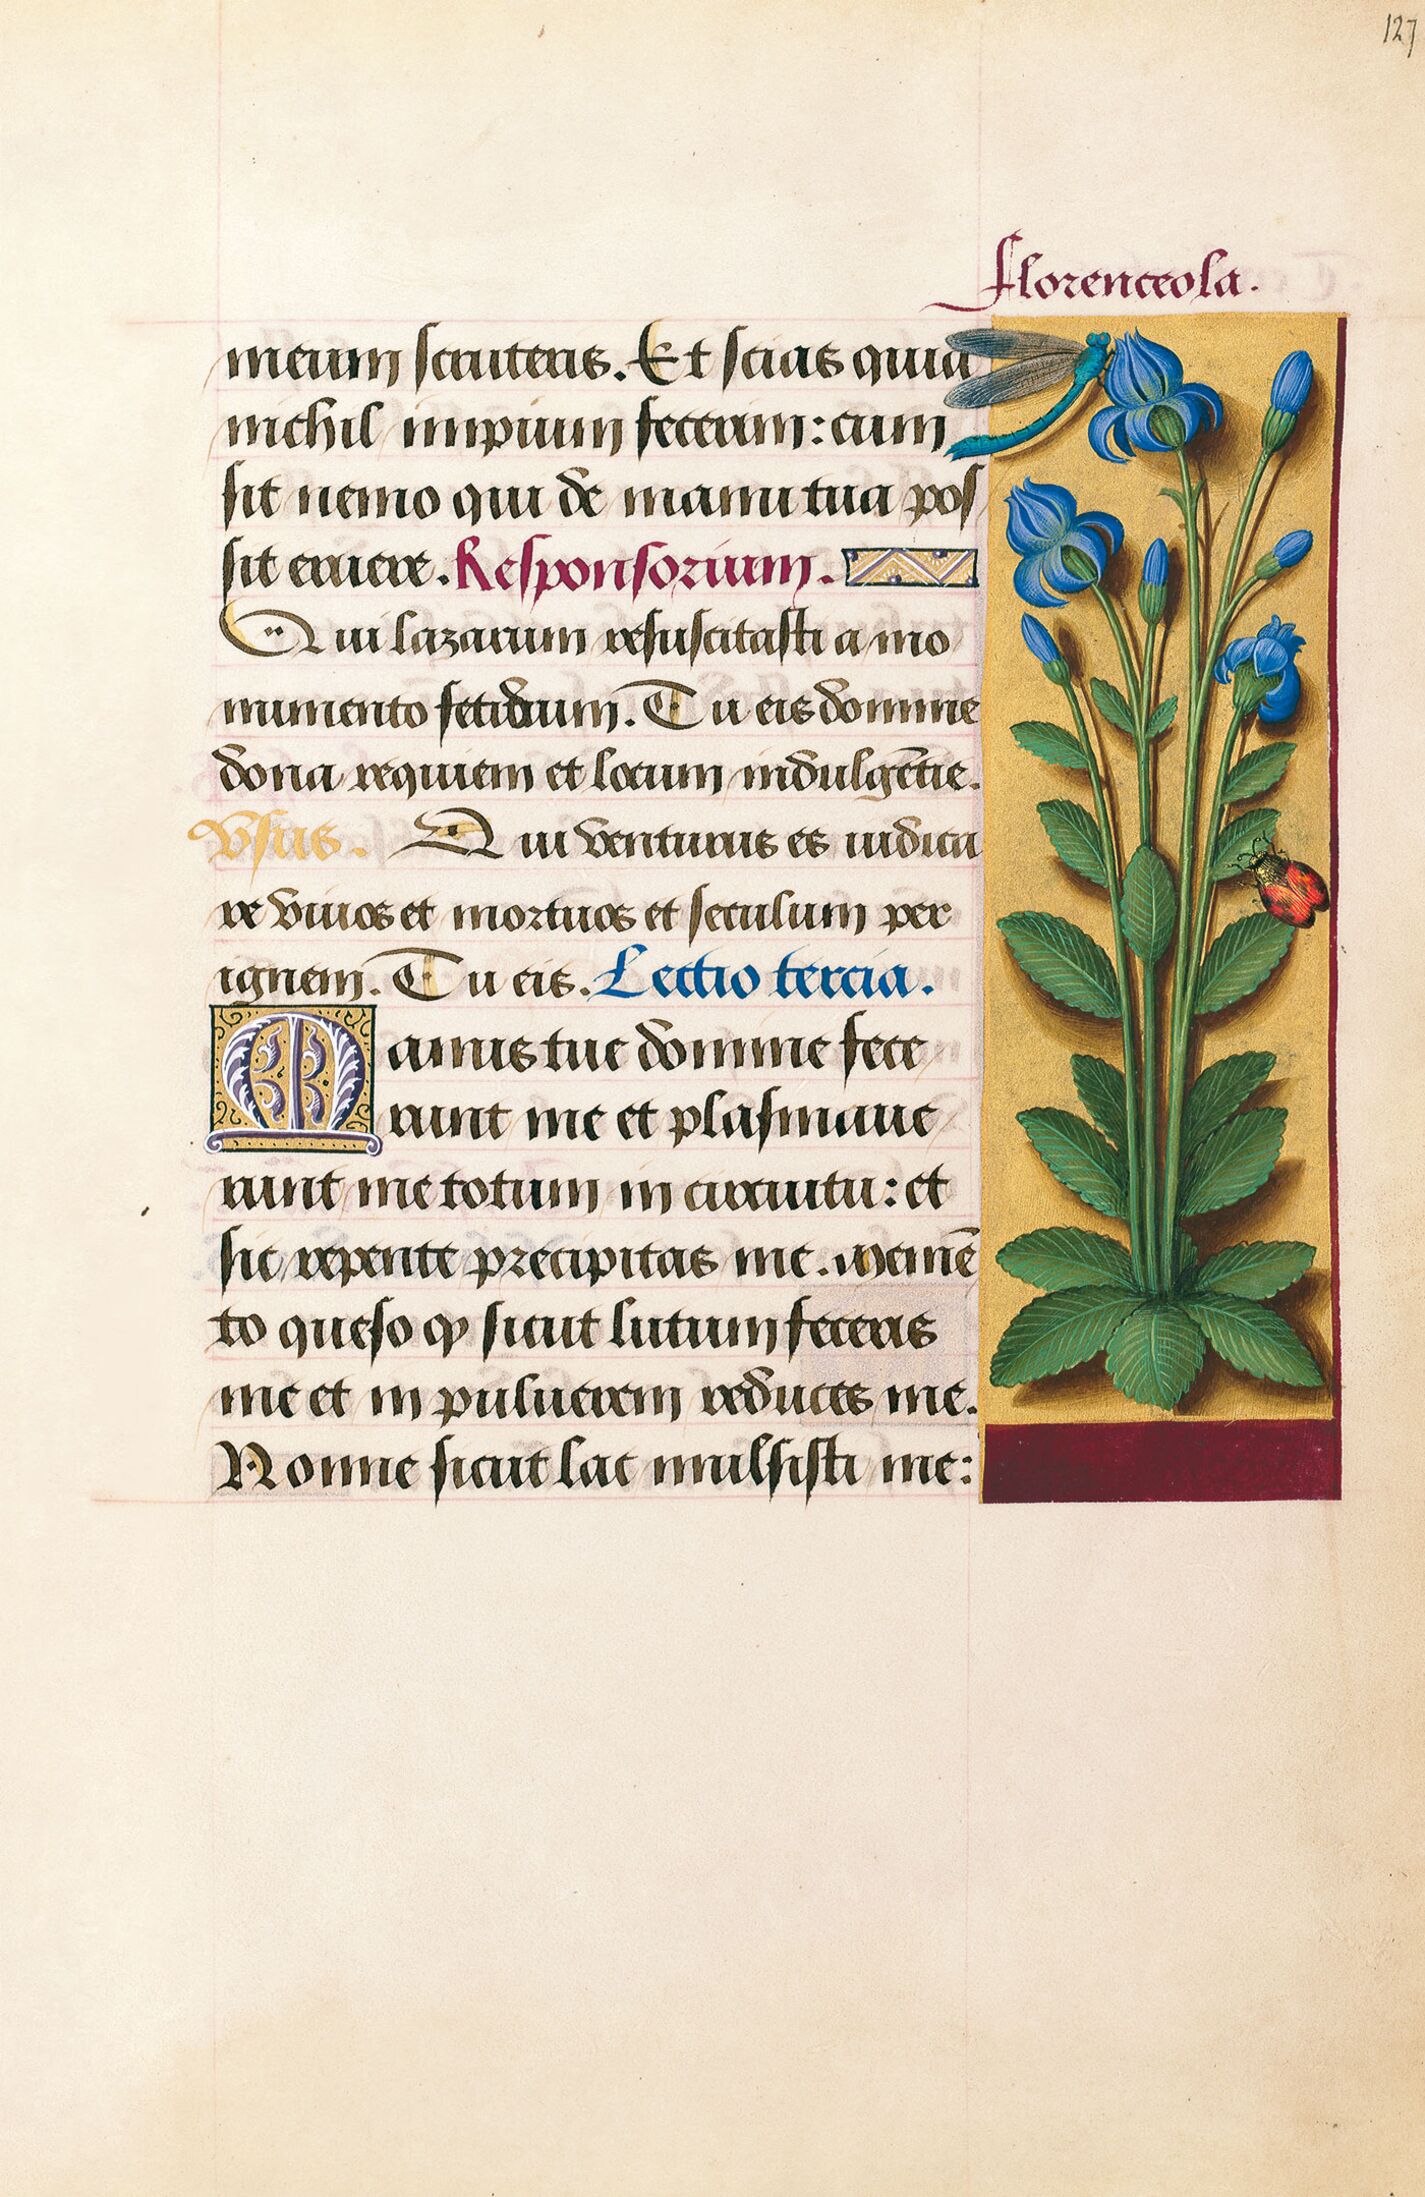 127
Florenceola.
meum scruteris. Et scias quia
nichil impium fecerim: cum
sit nemo qui de manu tua pos
sit eruere. Responsorium.
Qui lazarum resuscitasti a mo
numento fetidum. Tu eis domine
dona requiem et locum indulgẽtie.
Vsus. Qui venturus es iudica
re viuos et mortuos et seculum per
ignem. Tu eis. Lectio tercia.
Manus tue domine fece
runt me et plasmaue
runt me totum in circuitu: et
sic repente precipitas me. Memẽ
to queso ꝙ sicut lutum feceris
me et in puluerem reduces me.
Nonne sicut lac mulsisti me: